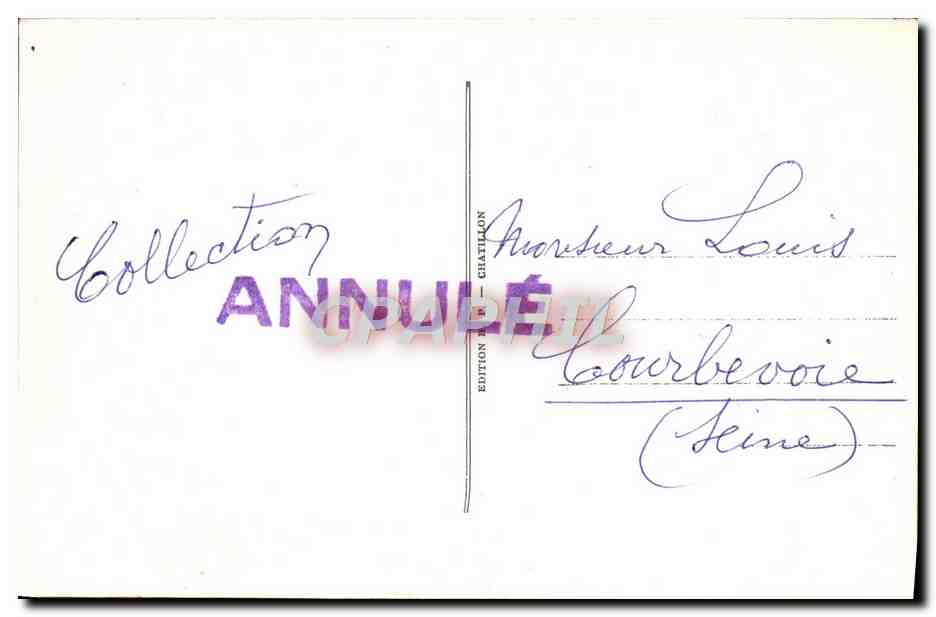 Collection
ANNULÉ
CPAPHIL
EDITION P. — CHATILLON
Monsieur Louis
Courbevoie
(Seine)